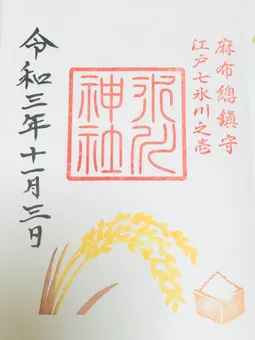 麻布總鎮守
江戸七氷川之壱
氷川神社
令和三年十一月三日